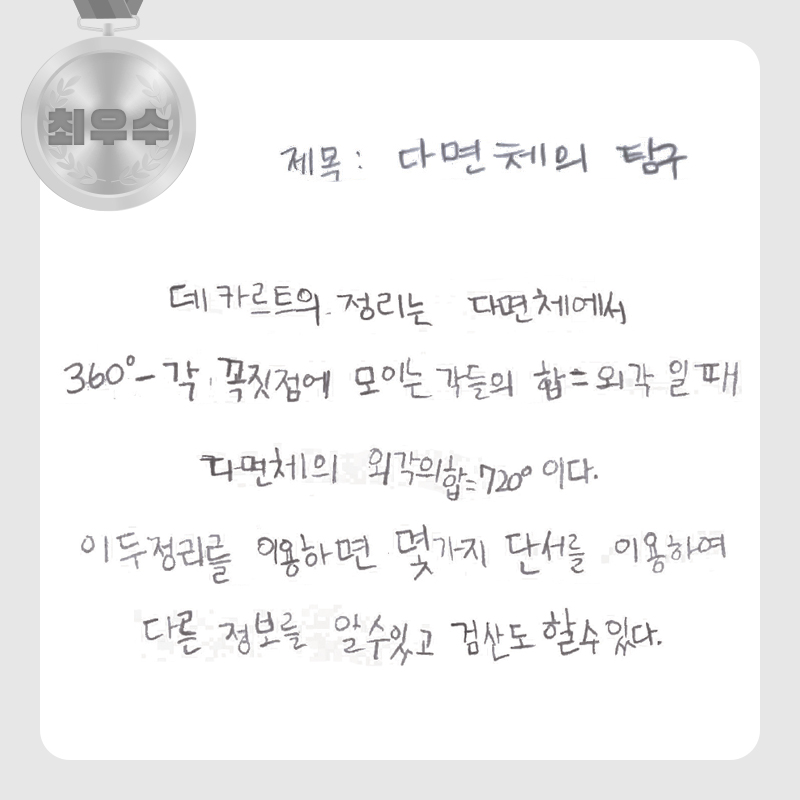 최우수
제목 : 다면체의 탐구
데카르트의 정리는 다면체에서
360°- 각 꼭짓점에 모이는 각들의 합 = 외각 일 때
다면체의 외각의합=720° 이다.
이 두정리를 이용하면 몇가지 단서를 이용하여
다른 정보를 알수있고 검산도 할수있다.